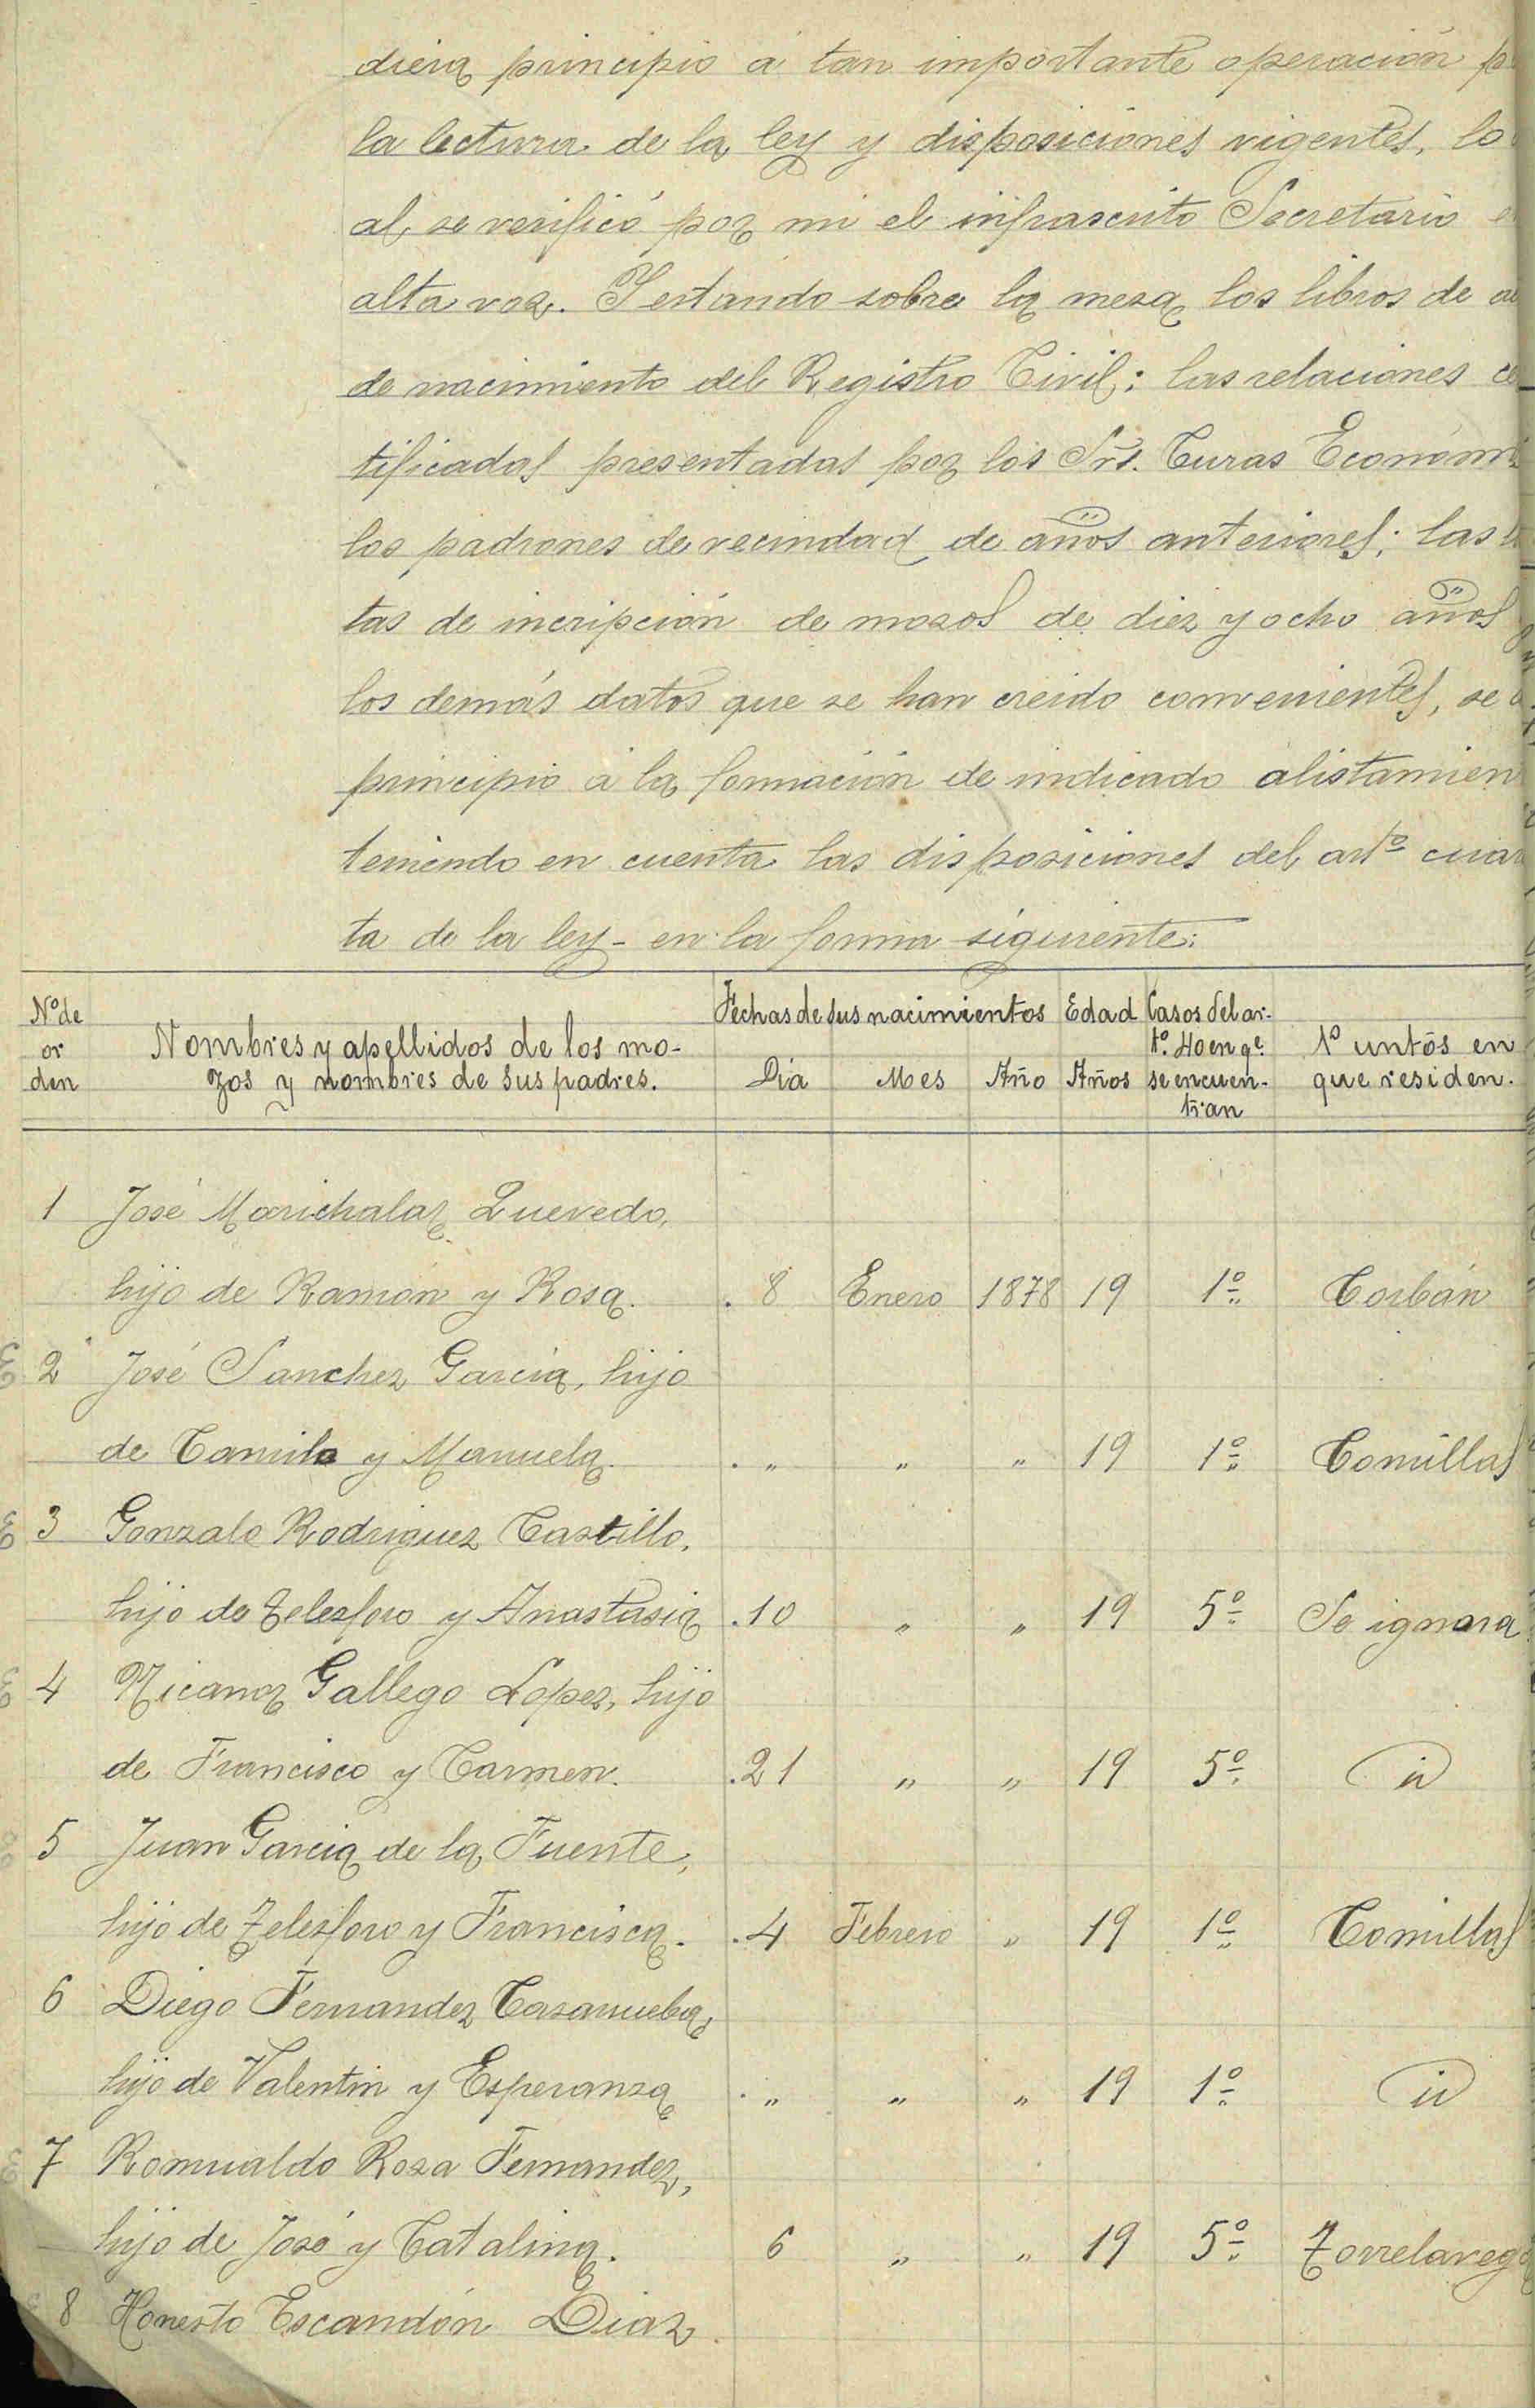 diera principio á tan importante operación p
la lectura de la ley y disposiciones vigentes, lo
al, se verificó por mi el infrascrito Secretario e
alta voz. Y estando sobre la mesa los libros de a
de nacimiento del Registro Civil; las relaciones ce
tificadas presentadas por los Srs. Curas Económ
los padrones de vecindad de años anteriores; las
tas de incripción de mozos de diez y ocho años
los demás datos que se han creido convenientes, se
principio á la formación de indicado alistamien
teniendo en cuenta las disposiciones del artº cuar
ta de la ley - en la forma siguiente:
Nº de or den Nombres y apellidos de los mo- zos y nombres de sus padres. Fechas de sus nacimientos Día Mes Año Edad Años Casos del ar- tº. 40 en qe. se encuen- tran Puntos en que residen.
1 José Marichalar Quevedo,
hijo de Ramón y Rosa. 8 Enero 1878 19 1º Corbán
2 José Sanchez García, hijo
de Camilo y Manuela. " " " 19 1º Comillas
3 Gonzalo Rodriguez Castillo,
hijo de Telesforo y Anastasia .10 " " 19 5º Se ignora
4 Nicanor Gallego Lopez, hijo
de Francisco y Carmen. .21 " " 19 5º id
5 Juan Garcia de la Fuente,
hijo de Telesforo y Francisca. .4 Febrero " 19 1º Comillas
6 Diego Fernandez Casanueba,
hijo de Valentin y Esperanza . " " " 19 1º id
7 Romualdo Roza Fernandez,
hijo de José y Catalina. 6 " " 19 5º Torrelavega
8 Honesto Escandón Diaz